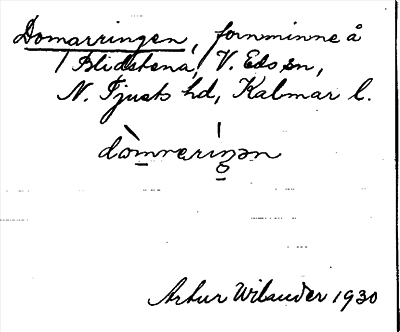 Domarringen, fornminne å
Blidstena, V. Eds sn,
N. Tjusts hd, Kalmar l.
dòmneriŋən
Artur Wilander 1930